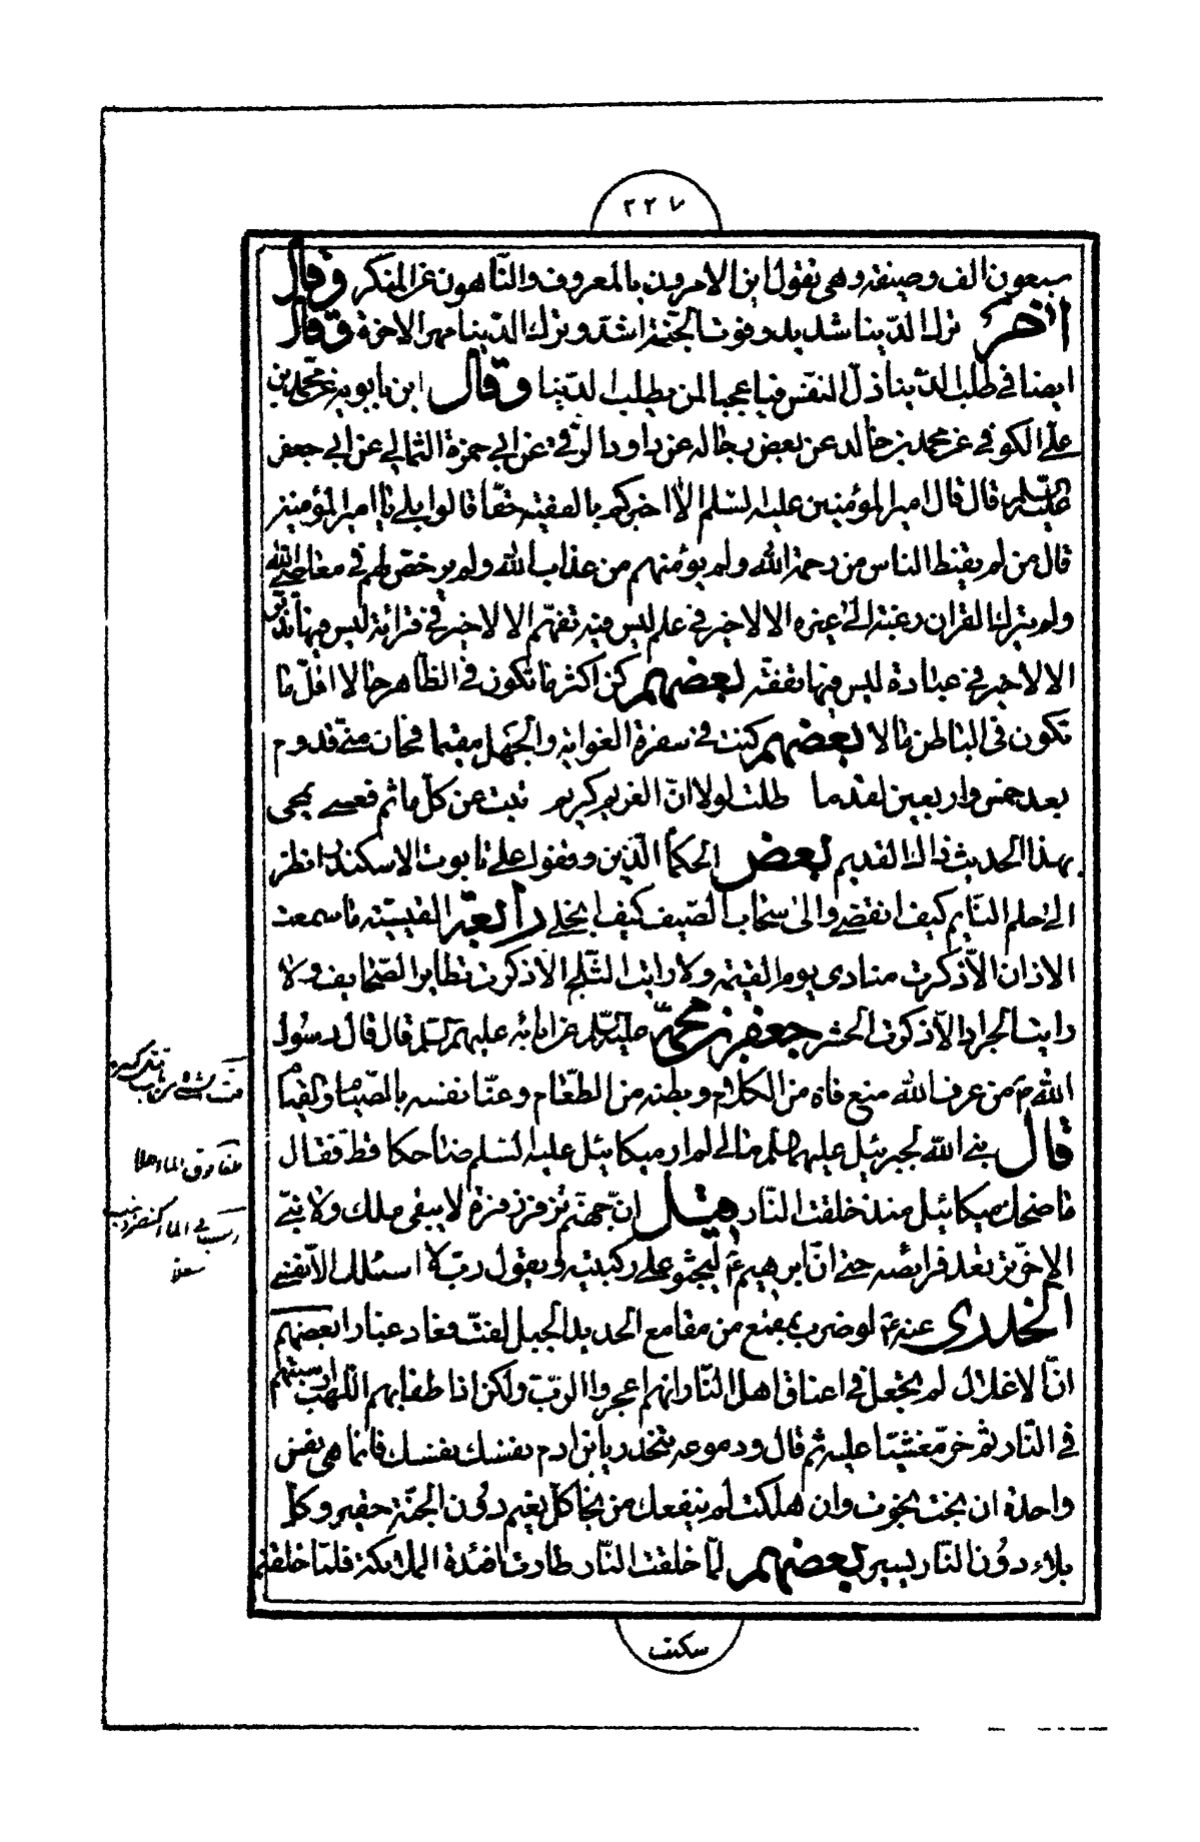 ٢٢٧
سبعون الف وصيفة وهي تقول اين الامرون بالمعروف والنّاهون عن المنكر وقال
اخر ترك الدّينا شديد وفوت الجنّة اشدّ وترك الدّينا مهر الاخرة وقال
ايضا في طلب الدّينا ذلّ النفس فيا عجبا لمن يطلب الدّينا وقال ابن بابويه عن محمّد بن
علي الكوفي عن محمد بن خالد عن بعض رجاله عن داود الرّقي عن ابي حمزة الثمالي عن ابي جعفر
عليه السّلم قال قال امير المؤمنين عليه السّلم الا اخبركم بالفقيه حقّا قالوا بلى يا امير المؤمنين
قال من لم يقنط الناس من رحمة الله ولم يؤمنهم من عذاب الله ولم يرخص لهم في معاصي الله
ولم يترك القران رغبة الى غيره الا لا خير في علم ليس فيه تفهّم الا لا خير في قرائة ليس فيها تدبّر
الا لا خير في عبادة ليس فيها تفقّه بعضهم كن اكثر ما تكون في الظاهر حالا اقلّ ما
تكون في الباطن مالا بعضهم كنت في سفرة الغواية والجهل مقيما فحان منّي قدوم
بعد خمس واربعين لقد ما طلت لولا انّ الغريم كريم تبت عن كلّ ماثم فعسى يمحى
بهذا الحديث ذاك القديم بعض الحكما الّذين وقفوا على تابوت الاسكندر انظر
الى حلم النّايم كيف انقضى والى سحاب الصّيف كيف انجلى رابعة القيسيّة ما سمعت
الاذان الّا ذكرت منادى يوم القيمة ولا رايت الثّلج الّا ذكرت تطاير الصّحايف ولا
رايت الجراد الّا ذكرت الحشر جعفر بن محمّد عليه السّلم عن ابائه عليهم السّلم قال قال رسول
الله ص من عرف الله منع فاه من الكلام وبطنه من الطّعام وعنّا نفسه بالصّيام والقيام
قال نبي الله لجبرئيل عليهما السّلم مالي لم ار ميكائيل عليه السّلم ضاحكا قطّ فقال
ما ضحك ميكائيل منذ خلقت النّار قيل انّ جهنّم تزفر زفرة لا يبقى ملك ولا نبيّ
الا خرّ ترتعد فرائصه حتى انّ ابرهيم ع ليجثو على ركبتيه ويقول ربّ لا اسئلك الّا نفسي
الخدرى عنه ع لو ضرب بمقمع من مقامع الحديد الجبل لفتّ فعاد غبارا بعضهم
انّ الاغلال لم تجعل في اعناق اهل النّار انهم اعجزوا الربّ ولكن اذا طفابهم اللّهب ارسبتهم
في النّار ثم خرّ مغشيّا عليه ثم قال ودموعه تتحدر يا بن ادم نفسك نفسك فانما هي نفس
واحدة ان نجت نجوت وان هلكت لم ينفعك من نجا كلّ نعيم دون الجنّة حقير وكلّ
بلاء دون النّار يسير بعضهم لمّا خلقت النّار طارت افئدة الملائكة فلمّا خلقتم
طفا فوق الماء علا
رسب في الماء
سكنت